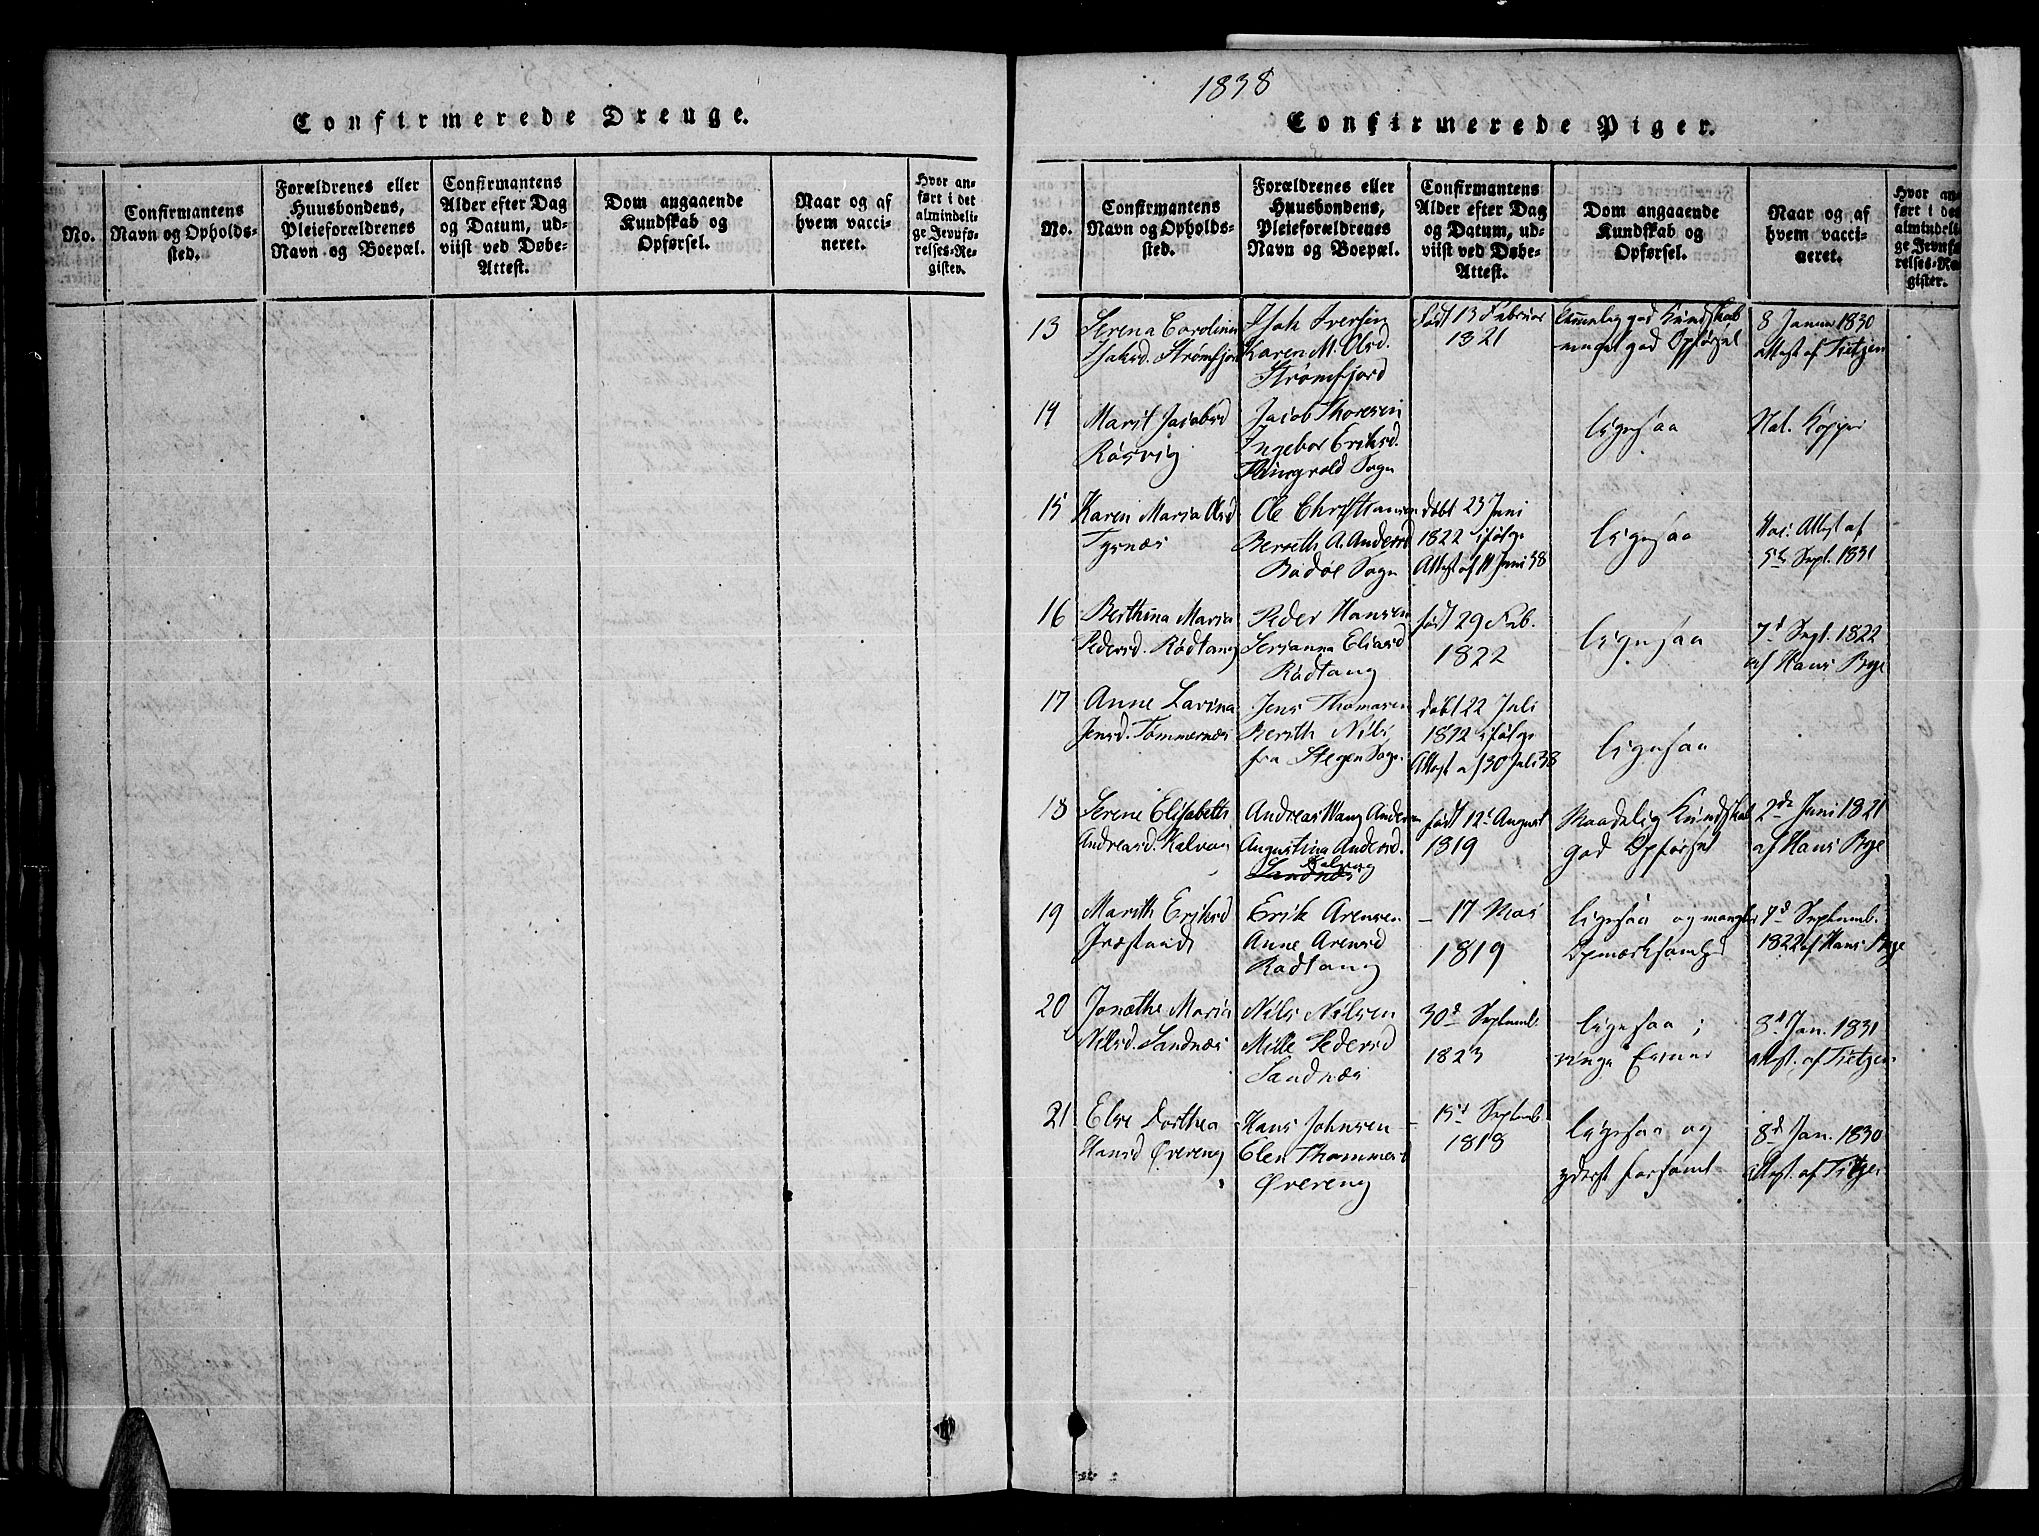 Confirmerede Drenge.
No.
Confirmantens
Navn og Opholds-
sted.
Forældrenes eller
Huusbondens,
Pleieforældrenes
Navn og Boepæl.
Confirmantens
Alder efter Dag
og Datum, ud-
viist ved Døbe-
Attest.
Dom angaaende
Kundskab og
Opførsel.
Naar og af
hvem vacci-
neret.
Hvor an-
ført i det
almindeli-
ge Jevnfø-
relses-Re-
gister.
1838
Confirmerede Piger.
No.
Confirmantens
Navn og Opholds-
sted.
Forældrenes eller
Huusbondens,
Pleieforældrenes
Navn og Boepæl.
Confirmantens
Alder efter Dag
og Datum, ud-
viist ved Døbe-
Attest.
Dom angaaende
Kundskab og
Opførsel.
Naar og af
hvem vacci-
neret.
Hvor an-
ført i det
almindeli-
ge Jevnfø-
relses-Re-
gister.
13
Serena Carolina
Isaksd. Strømfjord
Isak Iversen
Karen M. Olsd.
Strømfjord
født 13 Februar
1821
Temmelig god Kundskab
meget god Opførsel
8 Januar 1830
attest af Tietzen
14
Marit Jacobsd
Røsvig
Jacob Thoresen
Ingebor Eriksd.
Sogn
ligesaa
Nat. Kopper
15
Karen Maria Olsd
Tysnæs
Ole Christiansen
Bereth A. Andersd
Bodøe Sogn
døbt 23 Juni
1822 ifølge
Attest af 11 Juni 38
ligesaa
Vac. Attest af
5te Sept. 1831
16
Berthina Maria
Pedersd. Rødtang
Peder Hansen
Serianna Eliasd
Rødtang
født 29 Feb.
1822
ligesaa
7d Sept. 1822
af Hans Bye
17
Anne Lavina
Jensd. Tømmernæs
Jens Thomasen
Berith Nils
fra Stegen Sogn
døbt 22 Juli
1822 ifølge
Attest af 30 Juli 38
ligesaa
18
Serene Elisabeth
Andreasd. Kalvaag
Andreas Wang Andersen
Augustina Andersd.
Kalvaag
Sandnæs
født 12te August
1819
Maadelig Kundskab
god Opførsel
2de Juni 1821
af Hans Bye
19
Marith Eriksd
Erik Arensen
Anne Arensd
Rødtang
— 17 Mai
1819
ligesaa og mangler
Opmærksomhed
7d Septemb.
1822 af Hans Bye
20
Jonethe Maria
Nilsd. Sandnæs
Nils Nilsen
Mille Pedersd
Sandnæs
30d Septemb.
1823
ligesaa;
ringe Evner
8d Jan. 1831
attest. af Tietzen
21
Else Dorthea
Hansd Øvereng
Hans Johnsen
Elen Thommesd
Øvereng
— 15d Septemb
1818
ligesaa og
yderst forsømt
8d Jan. 1830
attest. af Tietzen